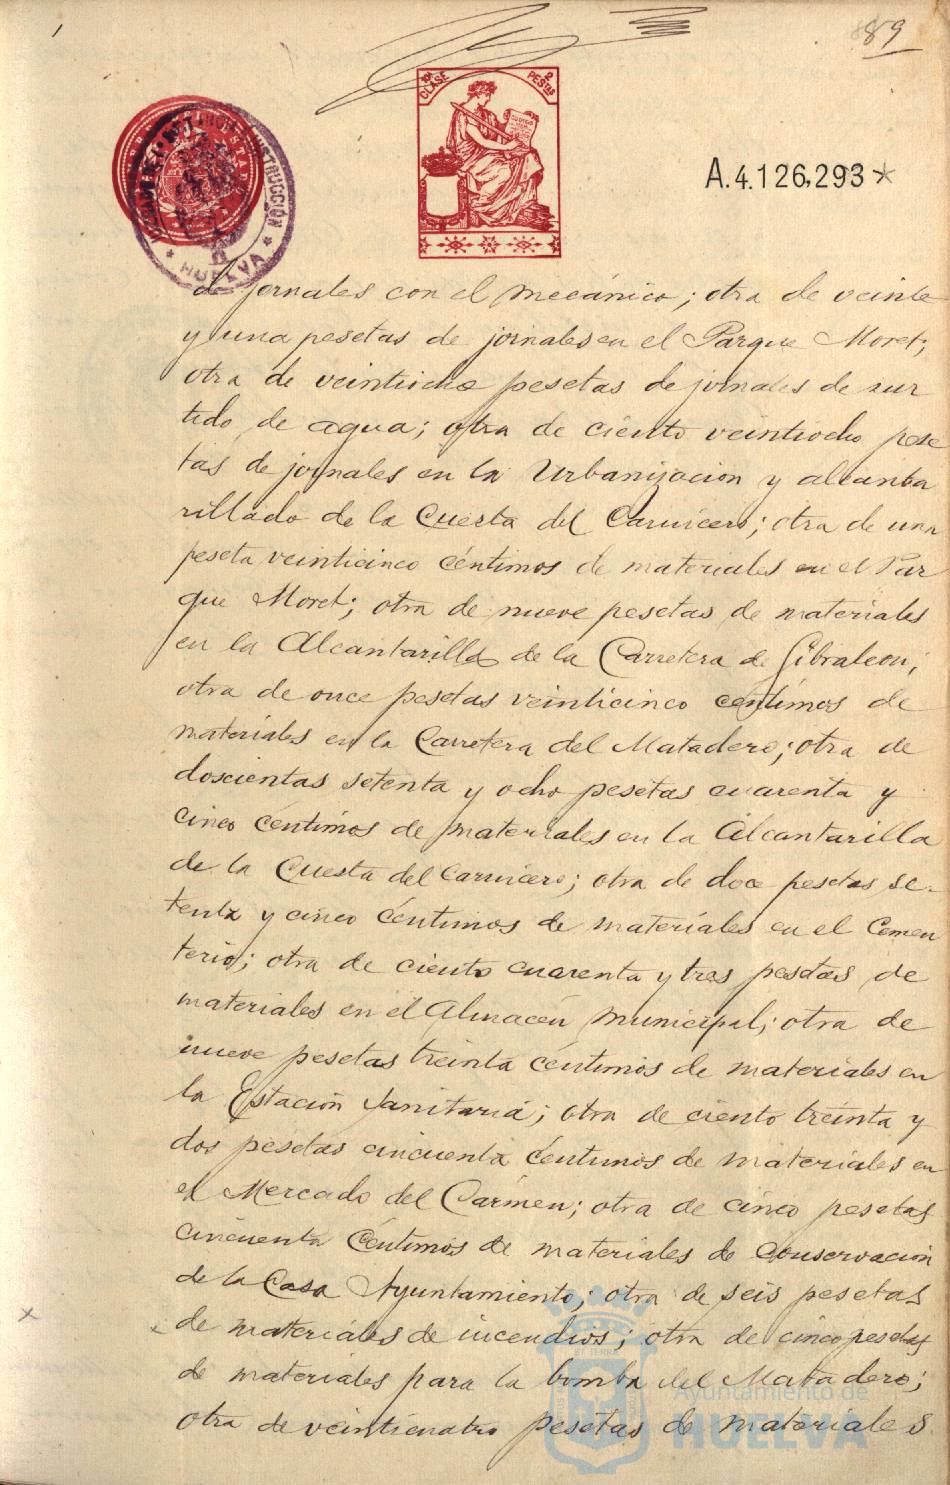 89
10ª CLASE
2 PESTAS
A.4.126,293*
HUELVA
de jornales con el mecánico; otra de veinte
y una pesetas de jornales en el Parque Moret;
otra de veintiocho pesetas de jornales de sur
tido de agua; otra de ciento veintiocho pese
tas de jornales en la Urbanizacion y alcanta
rillado de la Cuesta del Carnicero; otra de una
peseta veinticinco céntimos de materiales en el Par
que Moret; otra de nueve pesetas de materiales
en la Alcantarilla de la Carretera de Gibraleon;
otra de once pesetas veinticinco centimos de
materiales en la Carretera del Matadero; otra de
doscientas setenta y ocho pesetas cuarenta y
cinco céntimos de materiales en la Alcantarilla
de la Cuesta del Carnicero; otra de doce pesetas se-
tenta y cinco céntimos de materiales en el Cemen
terio; otra de ciento cuarenta y tres pesetas de
materiales en el Almacén Municipal; otra de
nueve pesetas treinta céntimos de materiales en
la Estación Sanitaria; otra de ciento treinta y
dos pesetas cincuenta céntimos de materiales en
el Mercado del Cármen; otra de cinco pesetas
cincuenta céntimos de materiales de conservacion
de la Casa Ayuntamiento; otra de seis pesetas
de materiales de incendios; otra de cinco pesetas
de materiales para la bomba del Matadero;
otra de veinticuatro pesetas de materiales
Ayuntamiento de
HUELVA